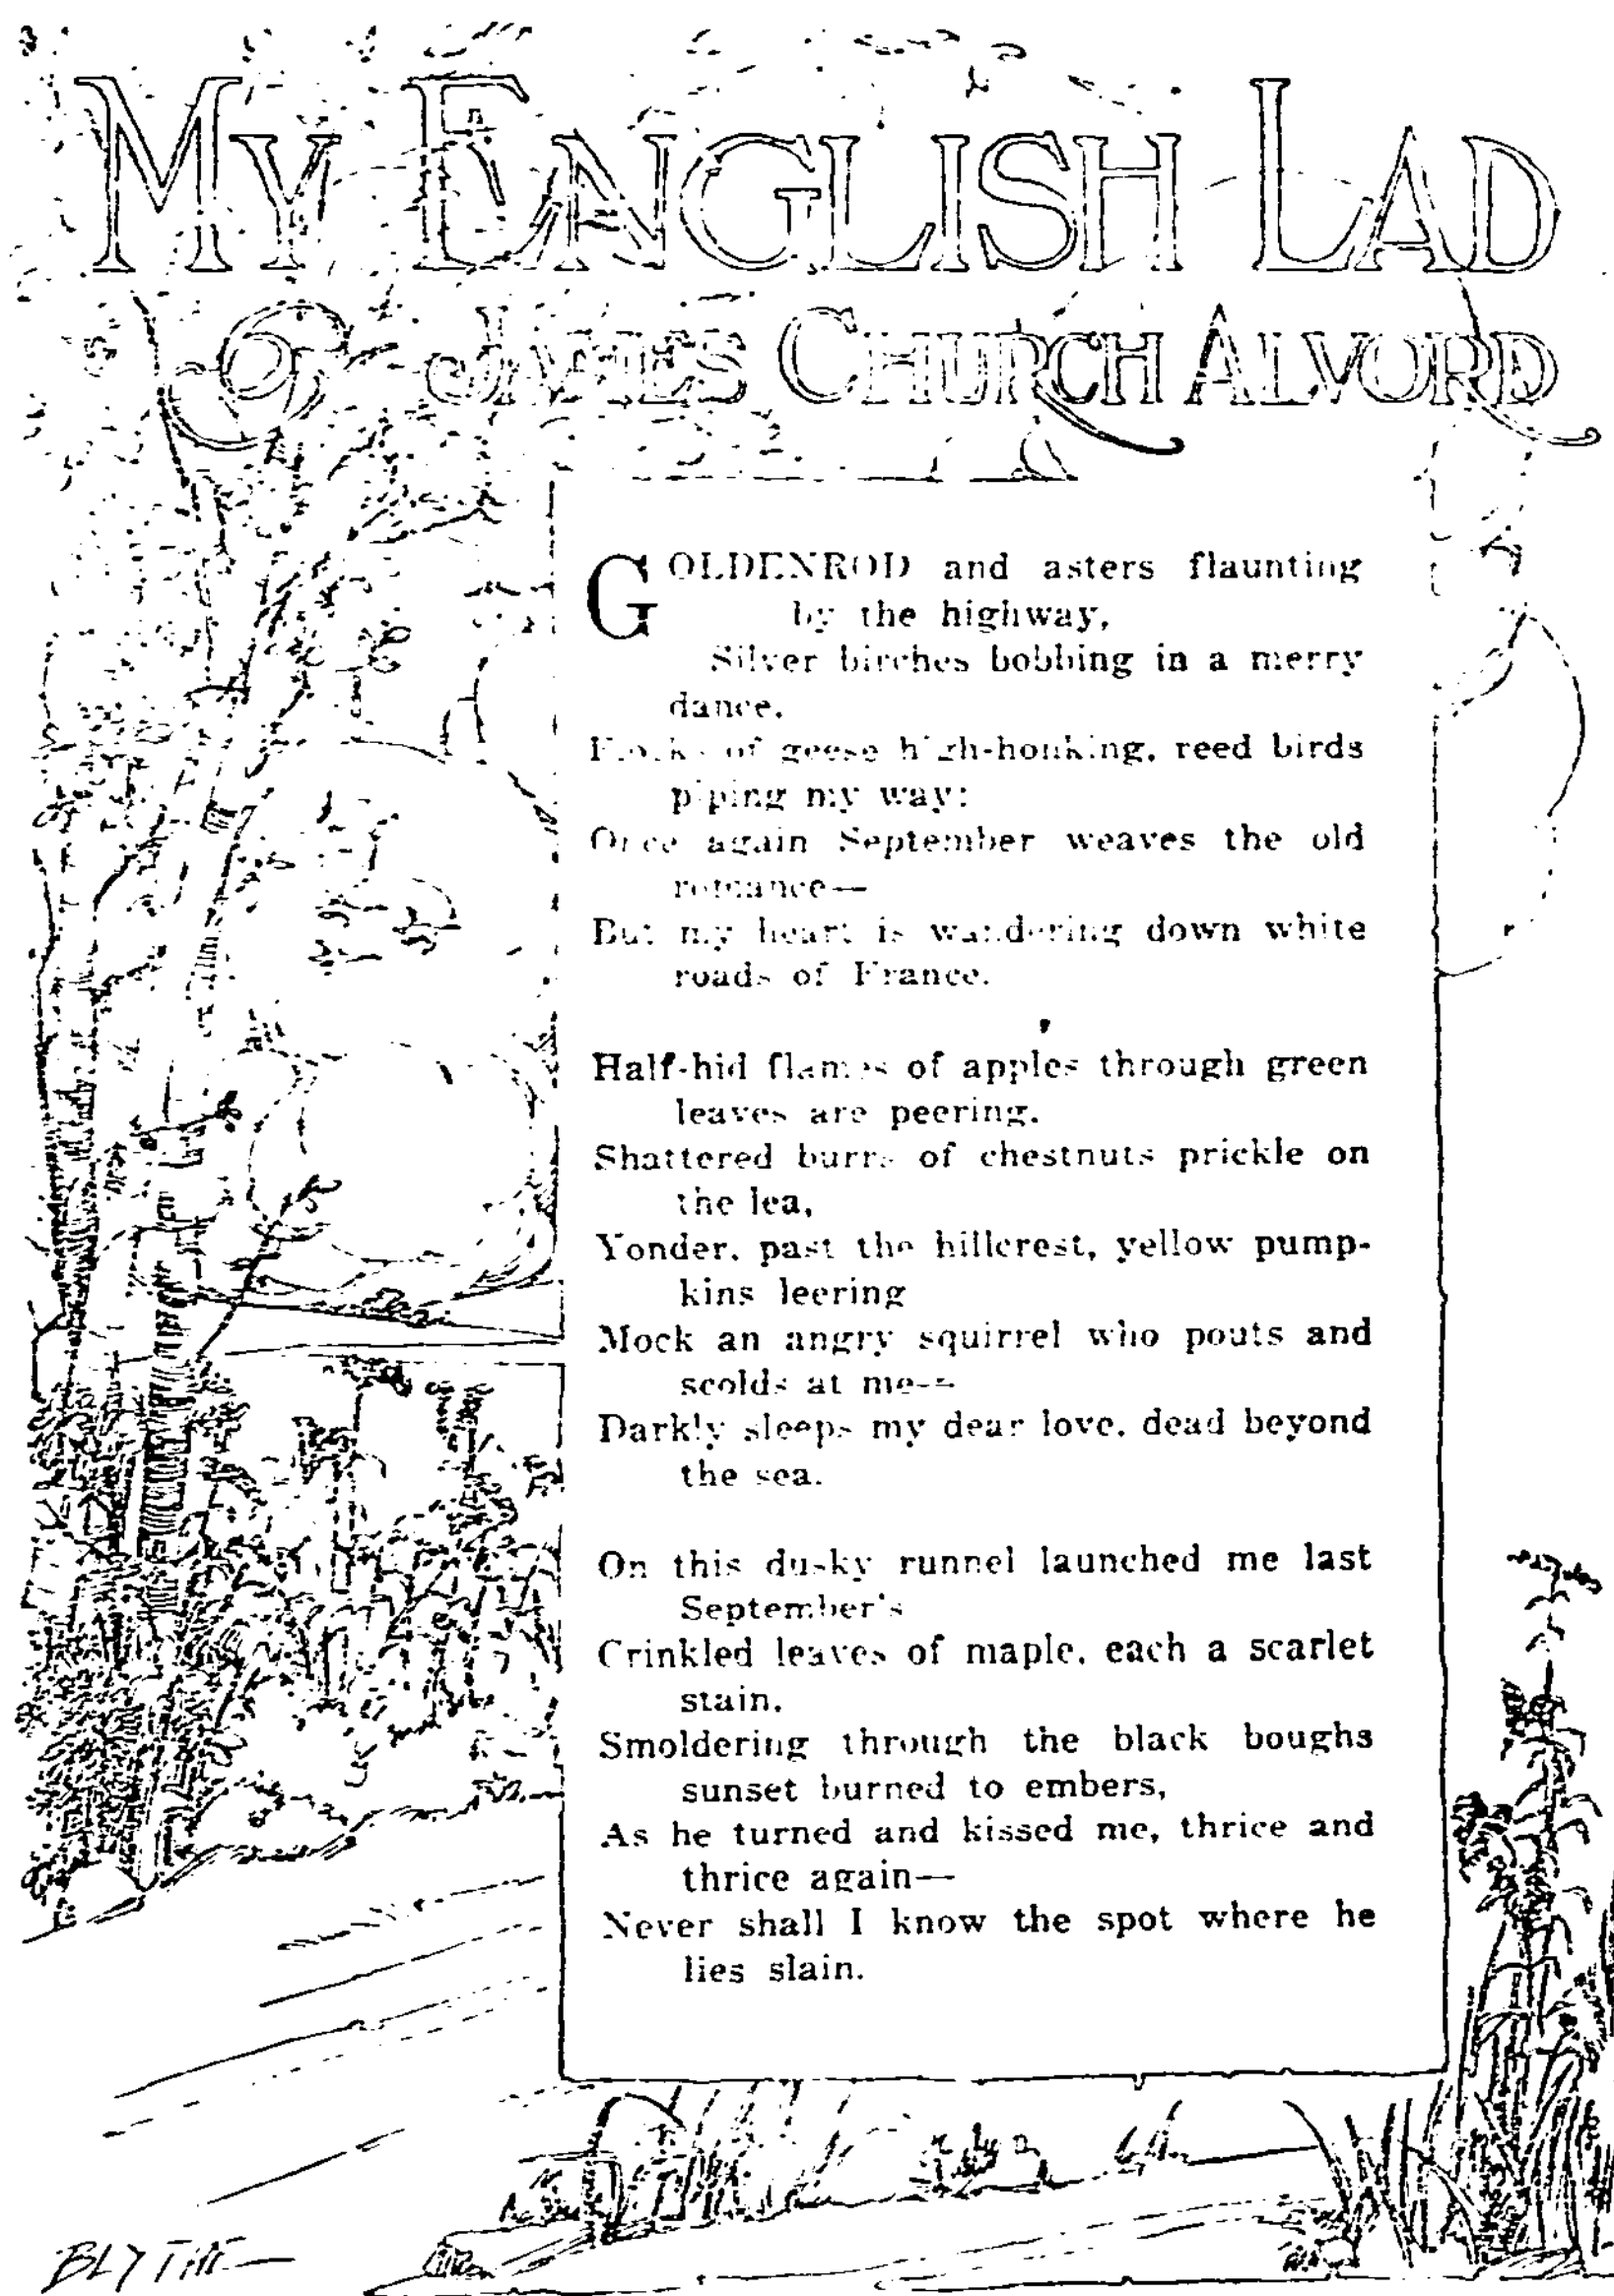 MY ENGLISH LAD
By JAMES CHURCH ALVORD
GOLDENROD and asters flaunting
by the highway,
Silver birches bobbing in a merry
dance,
Flocks of geese high-honking, reed birds
piping my way:
Once again September weaves the old
romance—
But my heart is wandering down white
roads of France.
Half-hid flames of apples through green
leaves are peering,
Shattered burrs of chestnuts prickle on
the lea,
Yonder, past the hillcrest, yellow pump-
kins leering
Mock an angry squirrel who pouts and
scolds at me—
Darkly sleeps my dear love, dead beyond
the sea.
On this dusky runnel launched me last
September's
Crinkled leaves of maple, each a scarlet
stain,
Smoldering through the black boughs
sunset burned to embers,
As he turned and kissed me, thrice and
thrice again—
Never shall I know the spot where he
lies slain.
BLYTHE